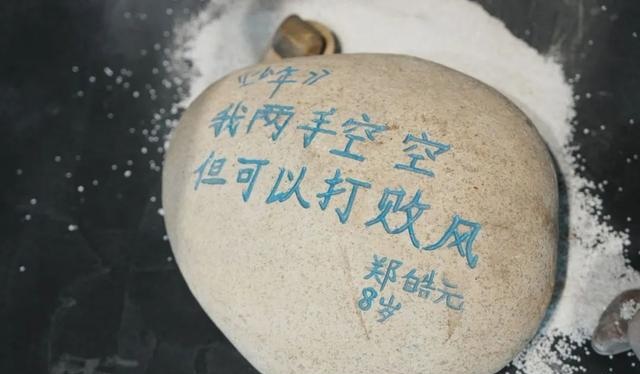 《少年》
我两手空空
但可以打败风
郑皓元
8岁